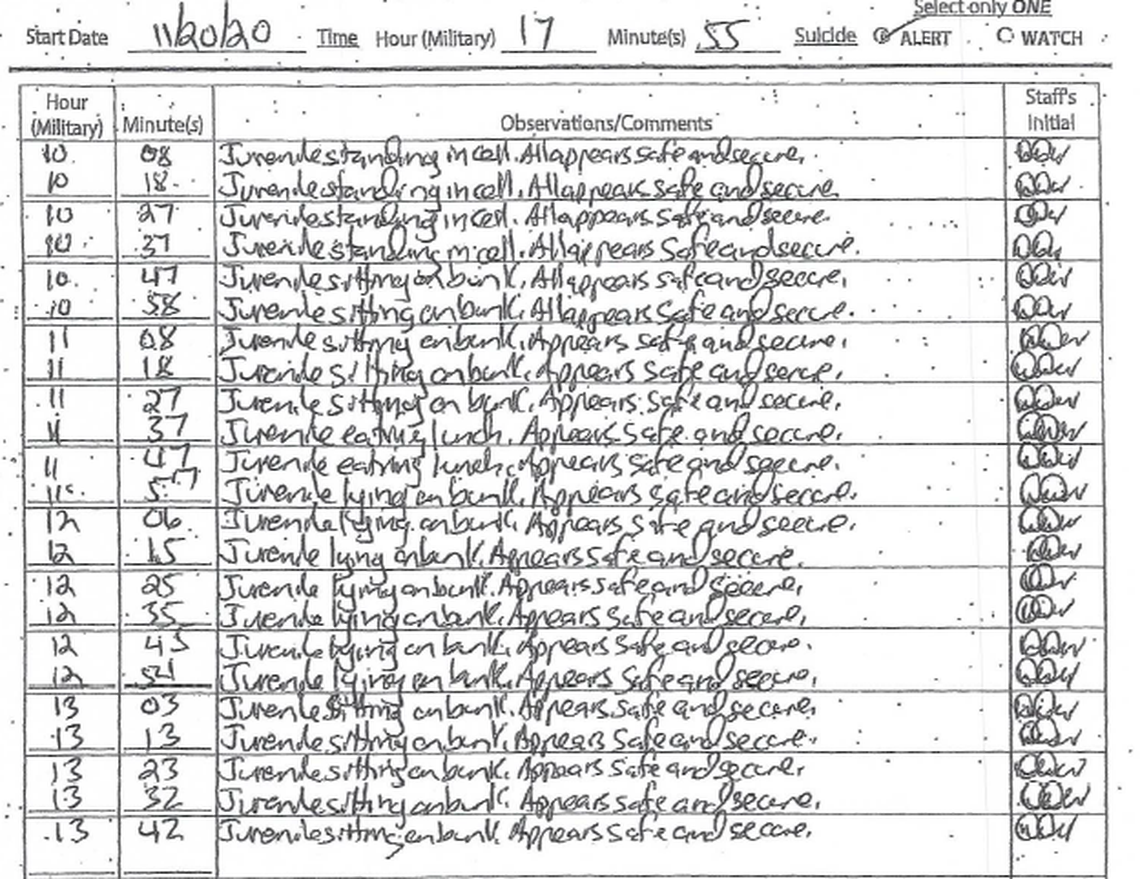 Select only ONE
Start Date 11/20/20 Time Hour (Military) 17 Minute(s) 55 Suicide ALERT WATCH
Hour (Military) Minute(s) Observations/Comments Staff's Initial
10 08 Juvenile standing in cell. All appears safe and secure.
10 18 Juvenile standing in cell. All appears safe and secure.
10 27 Juvenile standing in cell. All appears safe and secure.
10 37 Juvenile standing in cell. All appears safe and secure.
10 47 Juvenile sitting on bunk. All appears safe and secure.
10 58 Juvenile sitting on bunk. All appears safe and secure.
11 08 Juvenile sitting on bunk. Appears safe and secure.
11 18 Juvenile sitting on bunk. Appears safe and secure.
11 27 Juvenile sitting on bunk. Appears safe and secure.
11 37 Juvenile eating lunch. Appears safe and secure.
11 47 Juvenile eating lunch. Appears safe and secure.
11 57 Juvenile lying on bunk. Appears safe and secure.
12 06 Juvenile lying on bunk. Appears safe and secure.
12 15 Juvenile lying on bunk. Appears safe and secure.
12 25 Juvenile lying on bunk. Appears safe and secure.
12 35 Juvenile lying on bunk. Appears safe and secure.
12 45 Juvenile lying on bunk. Appears safe and secure.
12 54 Juvenile lying on bunk. Appears safe and secure.
13 03 Juvenile sitting on bunk. Appears safe and secure.
13 13 Juvenile sitting on bunk. Appears safe and secure.
13 23 Juvenile sitting on bunk. Appears safe and secure.
13 32 Juvenile sitting on bunk. Appears safe and secure.
13 42 Juvenile sitting on bunk. Appears safe and secure.